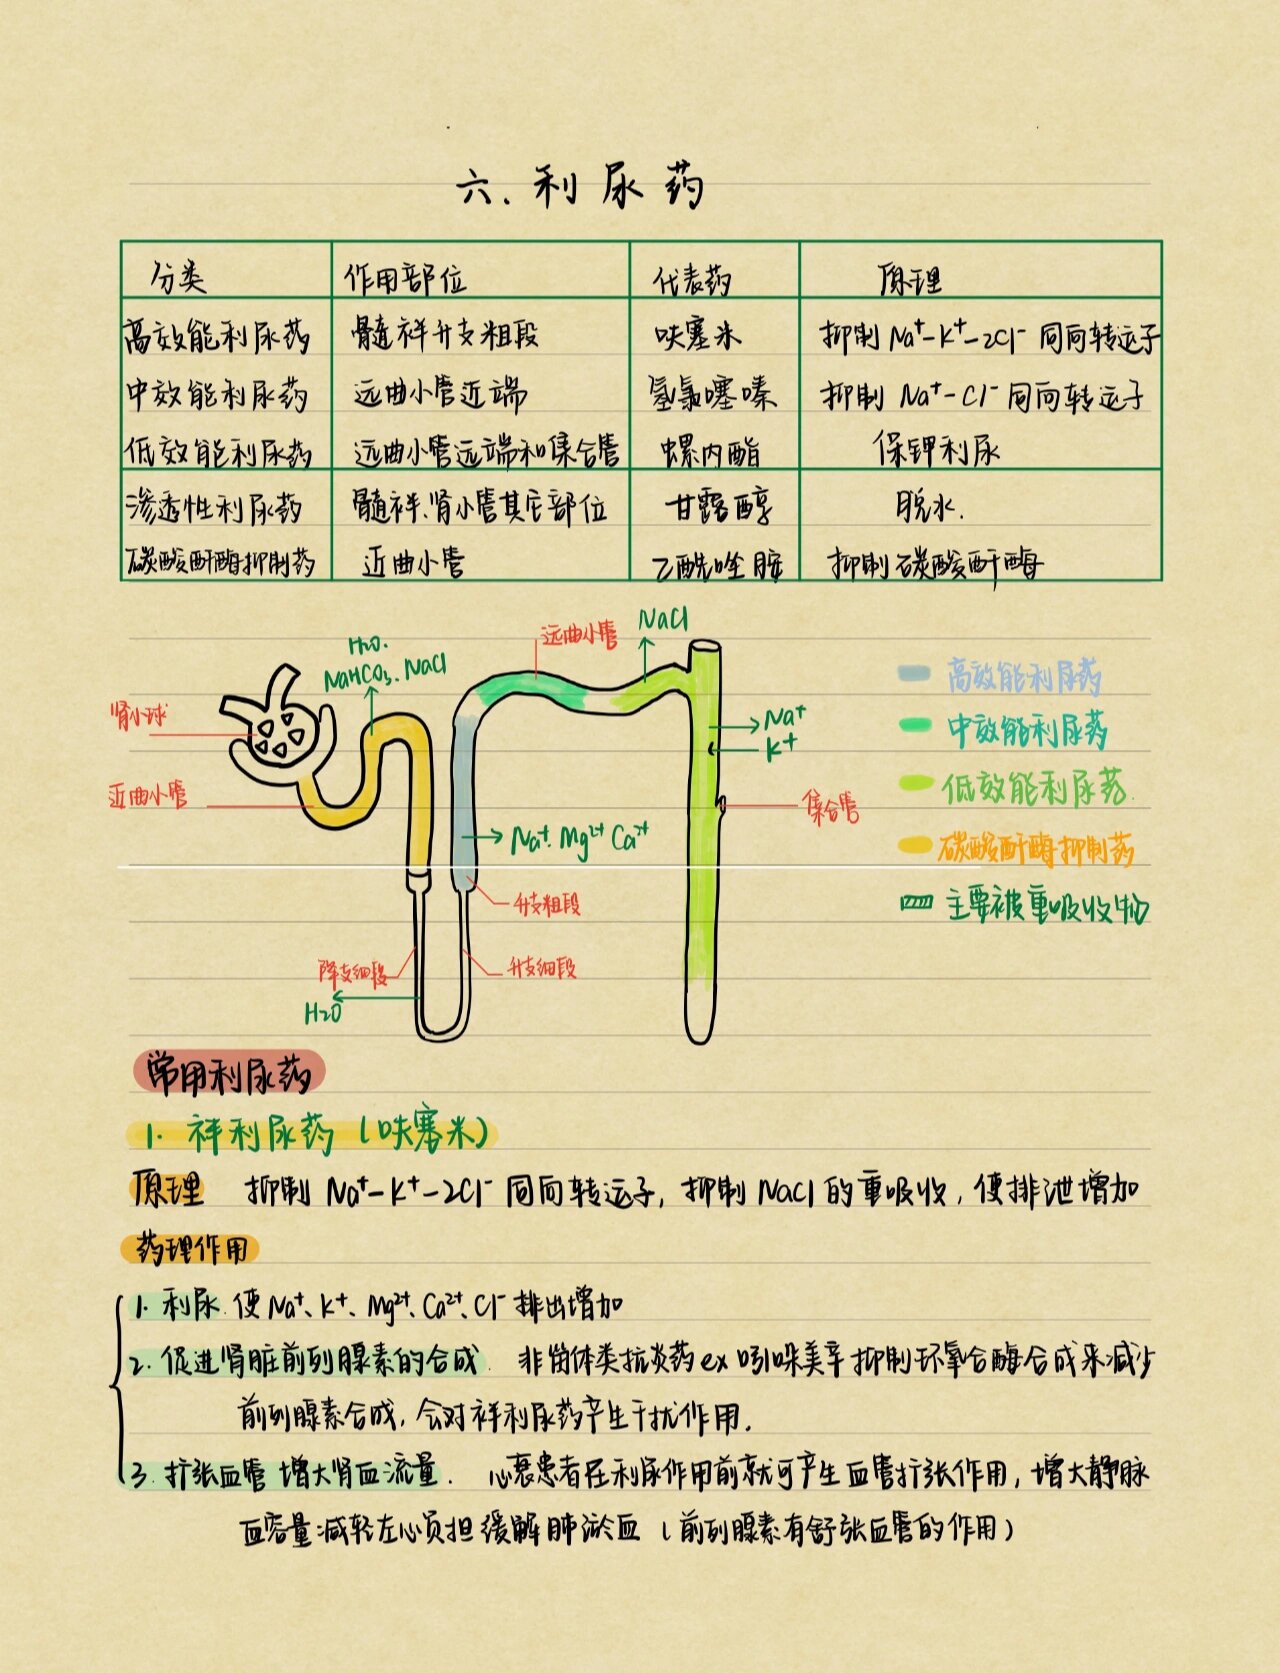 六.利尿药
分类 作用部位 代表药 原理
高效能利尿药 髓袢升支粗段 呋塞米 抑制Na⁺-K⁺-2Cl⁻同向转运子
中效能利尿药 远曲小管近端 氢氯噻嗪 抑制Na⁺-Cl⁻同向转运子
低效能利尿药 远曲小管远端和集合管 螺内酯 保钾利尿
渗透性利尿药 髓袢、肾小管其它部位 甘露醇 脱水.
碳酸酐酶抑制药 近曲小管 乙酰唑胺 抑制碳酸酐酶
NaCl
远曲小管
H₂O.
NaHCO₃.NaCl
高效能利尿药
肾小球
Na⁺
中效能利尿药
K⁺
近曲小管
低效能利尿药.
集合管
Na⁺.Mg²⁺Ca²⁺
碳酸酐酶抑制药
升支粗段
主要被重吸收物
降支细段
升支细段
H₂O
常用利尿药
1. 袢利尿药(呋塞米)
原理 抑制Na⁺-K⁺-2Cl⁻同向转运子,抑制NaCl的重吸收,使排泄增加
药理作用
1. 利尿.使Na⁺、K⁺、Mg²⁺、Ca²⁺、Cl⁻排出增加
2. 促进肾脏前列腺素的合成. 非甾体类抗炎药ex吲哚美辛抑制环氧合酶合成来减少
前列腺素合成,会对袢利尿药产生干扰作用.
3. 扩张血管 增大肾血流量. 心衰患者在利尿作用前就可产生血管扩张作用,增大静脉
血容量 减轻左心负担 缓解肺淤血(前列腺素有舒张血管的作用)